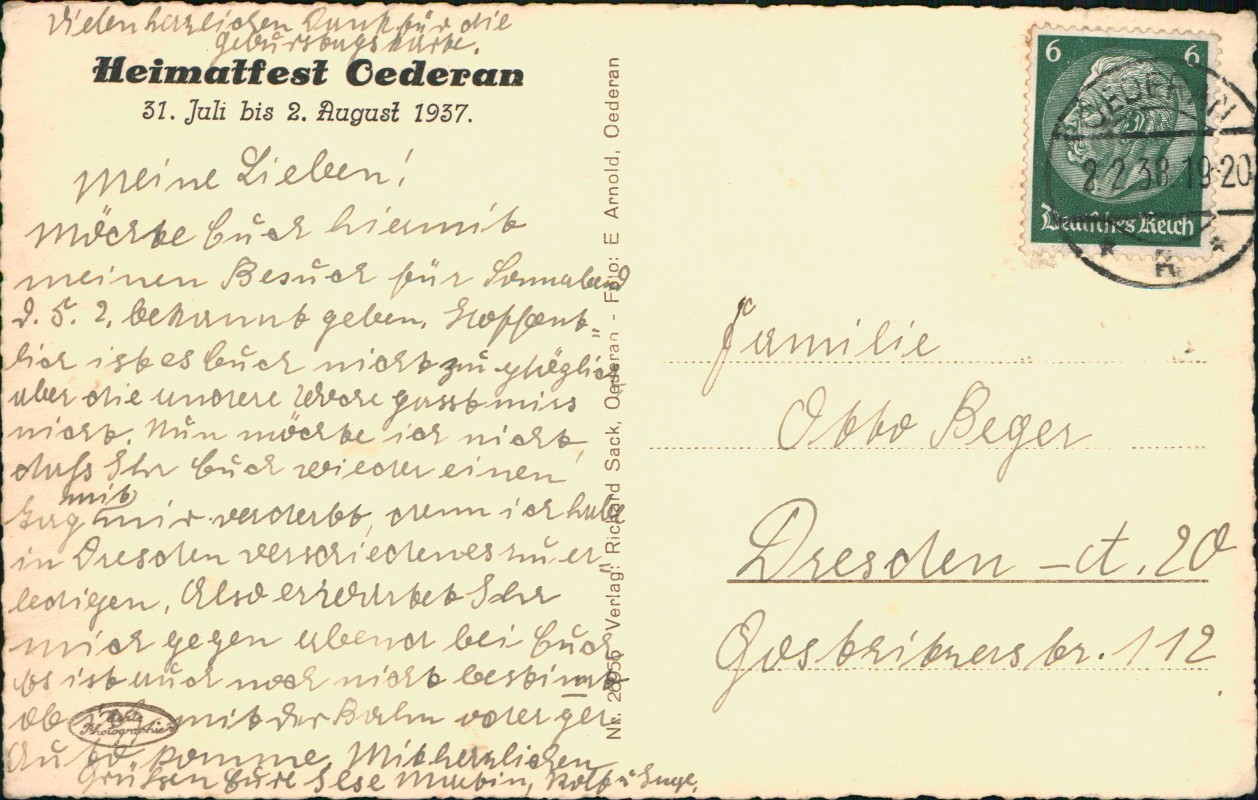 Vielen herzlichen Dank für die
Geburtstagskarte.
Heimatfest Oederan
31. Juli bis 2. August 1937.
Meine Lieben!
Möchte Euch hiermit
meinen Besuch für Sonnabend
d. 5. 2. bekannt geben. Hoffent-
lich ist es Euch nicht zu plötzlich
aber die andere Woche passt miss
nicht. Nun möchte ich nicht,
daß Ihr Euch wieder einen
mit
Tag mir verderbt, denn ich habe
in Dresden verschiedenes zu er-
ledigen. Also erwartet Ihr
mich gegen abend bei Euch
Es ist auch noch nicht bestimmt
ob ich mit der Bahn oder per
Auto komme. Mit herzlichen
Grüßen Eure Ilse Martin, Rolf u Inge.
Echte
Photographie
Nr. 26956 Verlag: Richard Sack, Oederan - Foto: E Arnold, Oederan
6 6
Deutsches Reich
OEDERAN
2.2.38.19-20
* *
Familie
Otto Beger
Dresden - A. 20
Gostritzerstr. 112